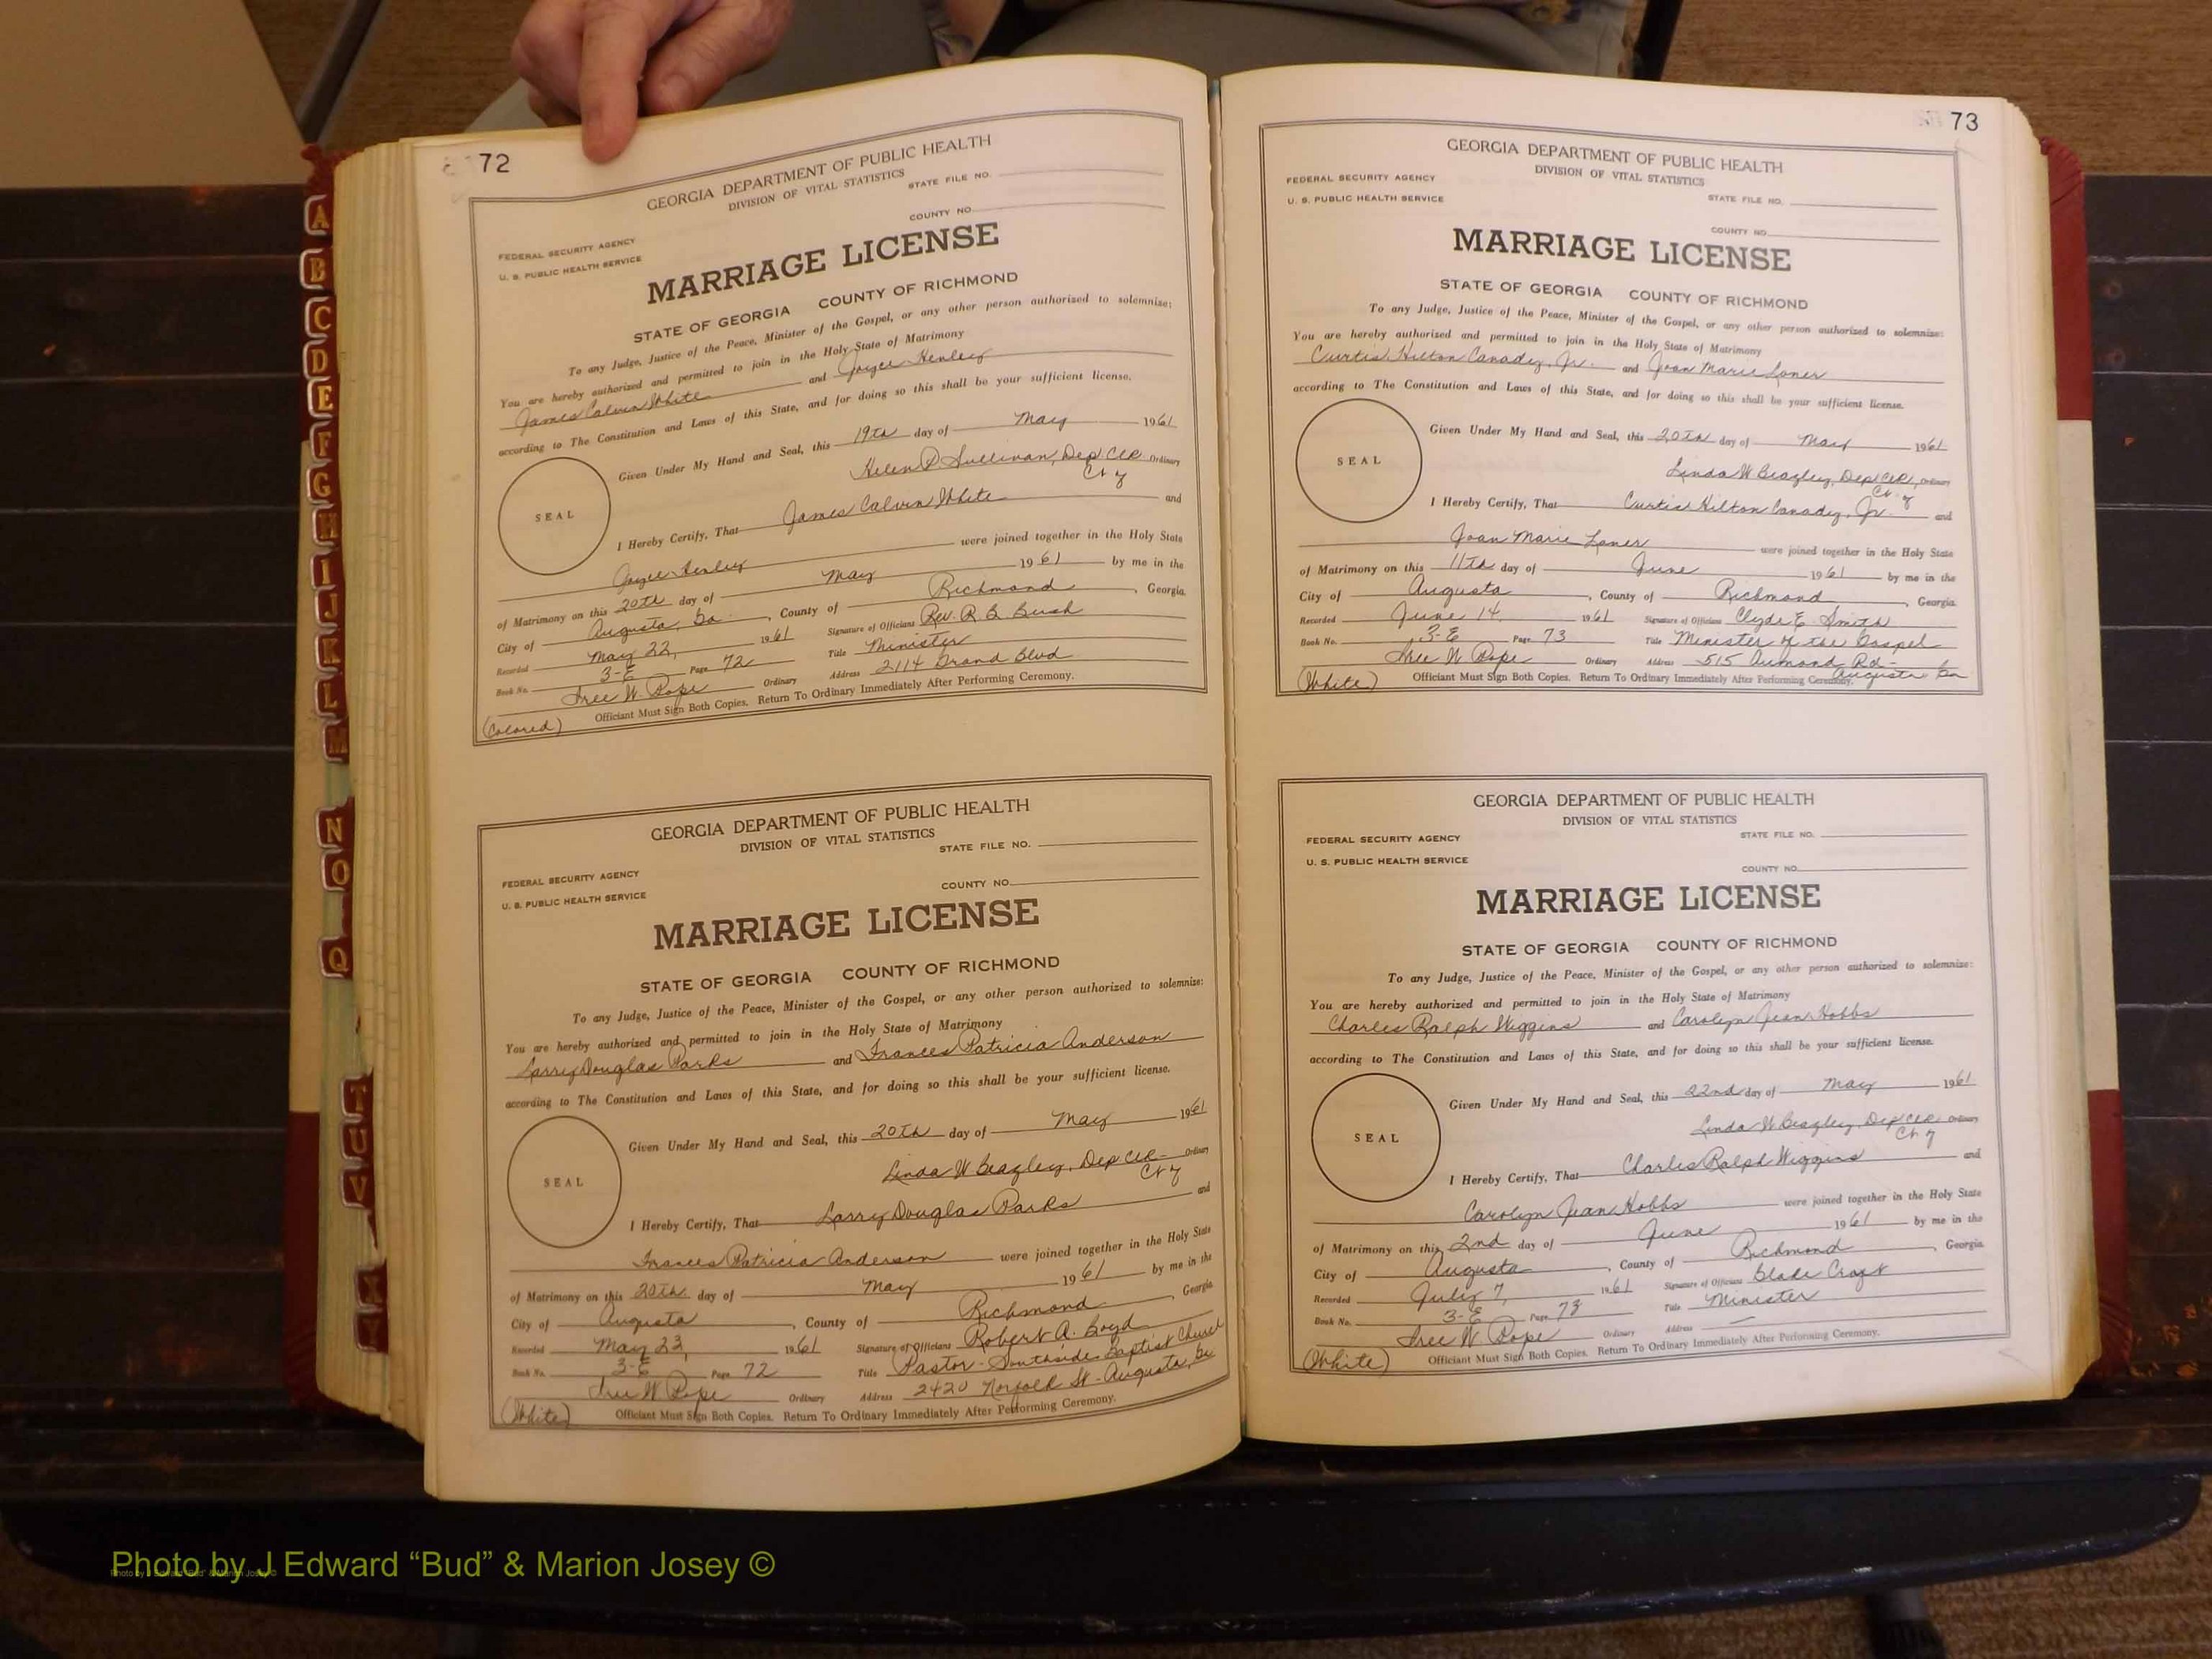 72
GEORGIA DEPARTMENT OF PUBLIC HEALTH
DIVISION OF VITAL STATISTICS
STATE FILE NO.
COUNTY NO.
FEDERAL SECURITY AGENCY
U. S. PUBLIC HEALTH SERVICE
MARRIAGE LICENSE
STATE OF GEORGIA COUNTY OF RICHMOND
To any Judge, Justice of the Peace, Minister of the Gospel, or any other person authorized to solemnize:
You are hereby authorized and permitted to join in the Holy State of Matrimony
James Calvin White and Joyce Henley
according to The Constitution and Laws of this State, and for doing so this shall be your sufficient license.
Given Under My Hand and Seal, this 19th day of May 1961
Helen P Sullivan, Dep Clk Ordinary
SEAL
I Hereby Certify, That James Calvin White and
Joyce Henley were joined together in the Holy State
of Matrimony on this 20th day of May 1961 by me in the
City of Augusta, Ga. , County of Richmond , Georgia.
Recorded May 22, 1961 Signature of Officiant Rev. R. B. Bush
Book No. 3-E Page 72 Title Minister
Pope Ordinary Address 2114 Grand Blvd
(Colored) Officiant Must Sign Both Copies. Return To Ordinary Immediately After Performing Ceremony.
GEORGIA DEPARTMENT OF PUBLIC HEALTH
DIVISION OF VITAL STATISTICS
STATE FILE NO.
COUNTY NO.
FEDERAL SECURITY AGENCY
U. S. PUBLIC HEALTH SERVICE
MARRIAGE LICENSE
STATE OF GEORGIA COUNTY OF RICHMOND
To any Judge, Justice of the Peace, Minister of the Gospel, or any other person authorized to solemnize:
You are hereby authorized and permitted to join in the Holy State of Matrimony
Larry Douglas Parks and Frances Patricia Anderson
according to The Constitution and Laws of this State, and for doing so this shall be your sufficient license.
Given Under My Hand and Seal, this 20th day of May 1961
Linda W Beazley, Dep Clk Ordinary
SEAL
I Hereby Certify, That Larry Douglas Parks and
Frances Patricia Anderson were joined together in the Holy State
of Matrimony on this 20th day of May 1961 by me in the
City of Augusta , County of Richmond , Georgia.
Recorded May 23, 1961 Signature of Officiant Robert A. Boyd
Book No. 3-E Page 72 Title Pastor - Southside Baptist Church
Pope Ordinary Address 2420 Norfolk St - Augusta, Ga
(White) Officiant Must Sign Both Copies. Return To Ordinary Immediately After Performing Ceremony.
73
GEORGIA DEPARTMENT OF PUBLIC HEALTH
DIVISION OF VITAL STATISTICS
FEDERAL SECURITY AGENCY
U. S. PUBLIC HEALTH SERVICE
STATE FILE NO.
COUNTY NO.
MARRIAGE LICENSE
STATE OF GEORGIA COUNTY OF RICHMOND
To any Judge, Justice of the Peace, Minister of the Gospel, or any other person authorized to solemnize:
You are hereby authorized and permitted to join in the Holy State of Matrimony
Curtis Hilton Canady, Jr. and Joan Marie Loner
according to The Constitution and Laws of this State, and for doing so this shall be your sufficient license.
Given Under My Hand and Seal, this 20th day of May 1961
Linda W Beazley, Dep Clk, Ordinary
SEAL
I Hereby Certify, That Curtis Hilton Canady, Jr. and
Joan Marie Loner were joined together in the Holy State
of Matrimony on this 11th day of June 1961 by me in the
City of Augusta , County of Richmond , Georgia.
Recorded June 14, 1961 Signature of Officiant Clyde E. Smith
Book No. 3-E Page 73 Title Minister of the Gospel
Pope Ordinary Address 515 Aumond Rd -
Augusta Ga
(White) Officiant Must Sign Both Copies. Return To Ordinary Immediately After Performing Ceremony.
GEORGIA DEPARTMENT OF PUBLIC HEALTH
DIVISION OF VITAL STATISTICS
FEDERAL SECURITY AGENCY
U. S. PUBLIC HEALTH SERVICE
STATE FILE NO.
COUNTY NO.
MARRIAGE LICENSE
STATE OF GEORGIA COUNTY OF RICHMOND
To any Judge, Justice of the Peace, Minister of the Gospel, or any other person authorized to solemnize:
You are hereby authorized and permitted to join in the Holy State of Matrimony
Charles Ralph Wiggins and Carolyn Jean Hobbs
according to The Constitution and Laws of this State, and for doing so this shall be your sufficient license.
Given Under My Hand and Seal, this 22nd day of May 1961
Linda W Beazley, Dep Clk Ordinary
SEAL
I Hereby Certify, That Charles Ralph Wiggins and
Carolyn Jean Hobbs were joined together in the Holy State
of Matrimony on this 2nd day of June 1961 by me in the
City of Augusta , County of Richmond , Georgia.
Recorded July 7, 1961 Signature of Officiant Croft
Book No. 3-E Page 73 Title Minister
Pope Ordinary Address —
(White) Officiant Must Sign Both Copies. Return To Ordinary Immediately After Performing Ceremony.
A
B
C
D
E
F
G
H
I
J
K
L
M
N
O
Q
T
U
V
X
Y
Photo by J Edward “Bud” & Marion Josey ©
Photo by J Edward “Bud” & Marion Josey ©